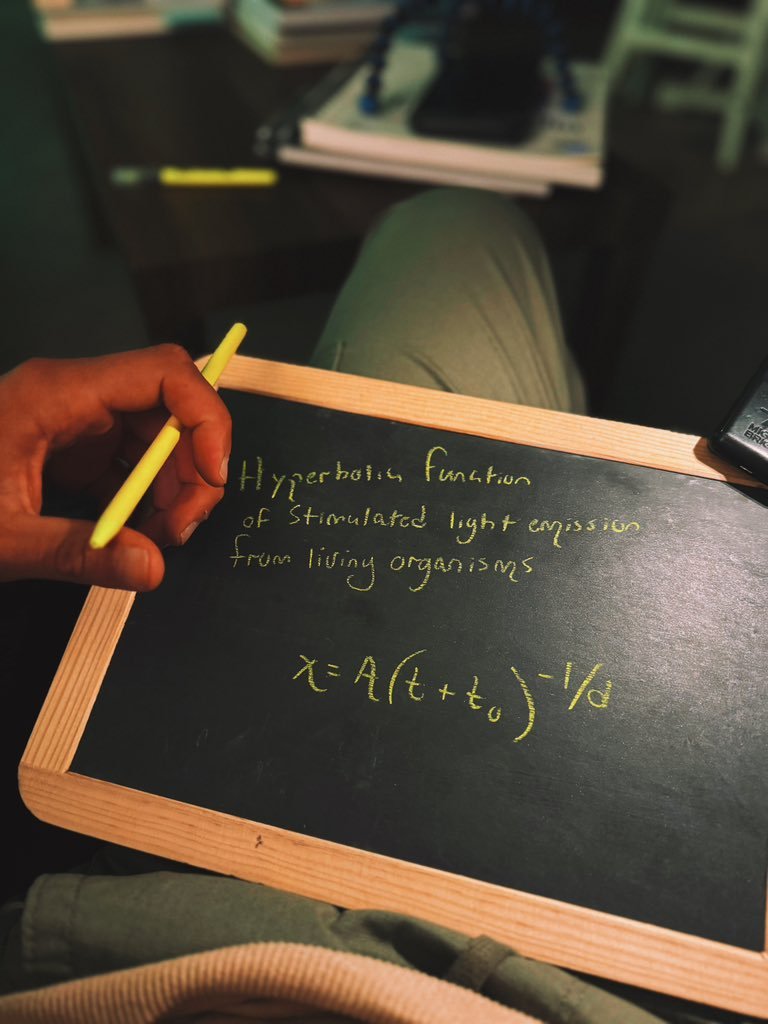 Hyperbolic function
of stimulated light emission
from living organisms
x = A(t + t₀)^-1/d